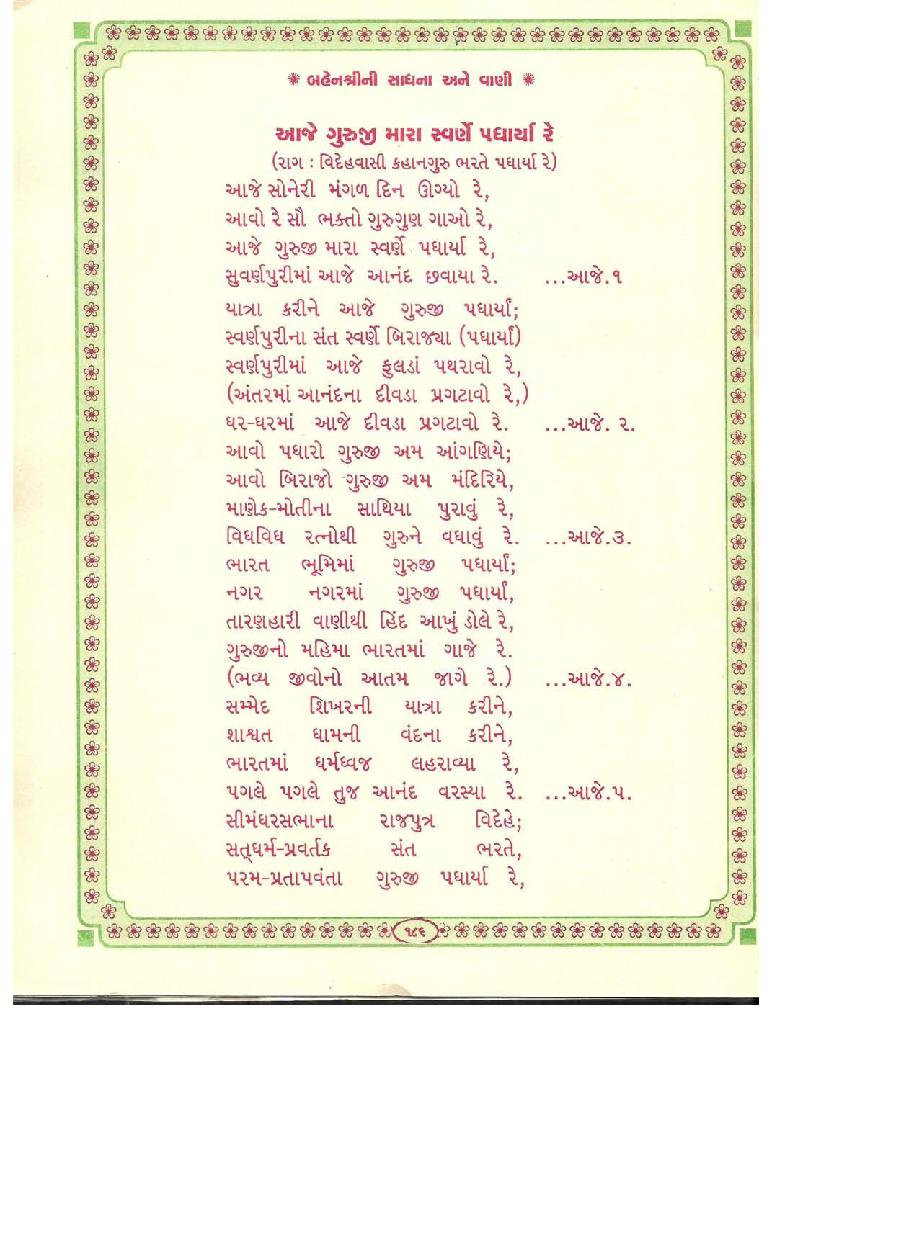 ❋ બહેનશ્રીની સાધના અને વાણી ❋
આજે ગુરુજી મારા સ્વર્ણે પધાર્યા રે
(રાગ : વિદેહવાસી કહાનગુરુ ભરતે પધાર્યા રે)
આજે સોનેરી મંગળ દિન ઊગ્યો રે,
આવો રે સૌ ભક્તો ગુરુગુણ ગાઓ રે,
આજે ગુરુજી મારા સ્વર્ણે પધાર્યા રે,
સુવર્ણપુરીમાં આજે આનંદ છવાયા રે. ...આજે.૧
યાત્રા કરીને આજે ગુરુજી પધાર્યાં;
સ્વર્ણપુરીના સંત સ્વર્ણે બિરાજ્યા (પધાર્યાં)
સ્વર્ણપુરીમાં આજે ફુલડાં પથરાવો રે,
(અંતરમાં આનંદના દીવડા પ્રગટાવો રે,)
ઘર-ઘરમાં આજે દીવડા પ્રગટાવો રે. ...આજે. ૨.
આવો પધારો ગુરુજી અમ આંગણિયે;
આવો બિરાજો ગુરુજી અમ મંદિરિયે,
માણેક-મોતીના સાથિયા પુરાવું રે,
વિધવિધ રત્નોથી ગુરુને વધાવું રે. ...આજે.૩.
ભારત ભૂમિમાં ગુરુજી પધાર્યાં;
નગર નગરમાં ગુરુજી પધાર્યાં,
તારણહારી વાણીથી હિંદ આખું ડોલે રે,
ગુરુજીનો મહિમા ભારતમાં ગાજે રે.
(ભવ્ય જીવોનો આતમ જાગે રે.) ...આજે.૪.
સમ્મેદ શિખરની યાત્રા કરીને,
શાશ્વત ધામની વંદના કરીને,
ભારતમાં ધર્મધ્વજ લહરાવ્યા રે,
પગલે પગલે તુજ આનંદ વરસ્યા રે. ...આજે.૫.
સીમંધરસભાના રાજપુત્ર વિદેહે;
સત્‌ધર્મ-પ્રવર્તક સંત ભરતે,
પરમ-પ્રતાપવંતા ગુરુજી પધાર્યા રે,
૧૮૬